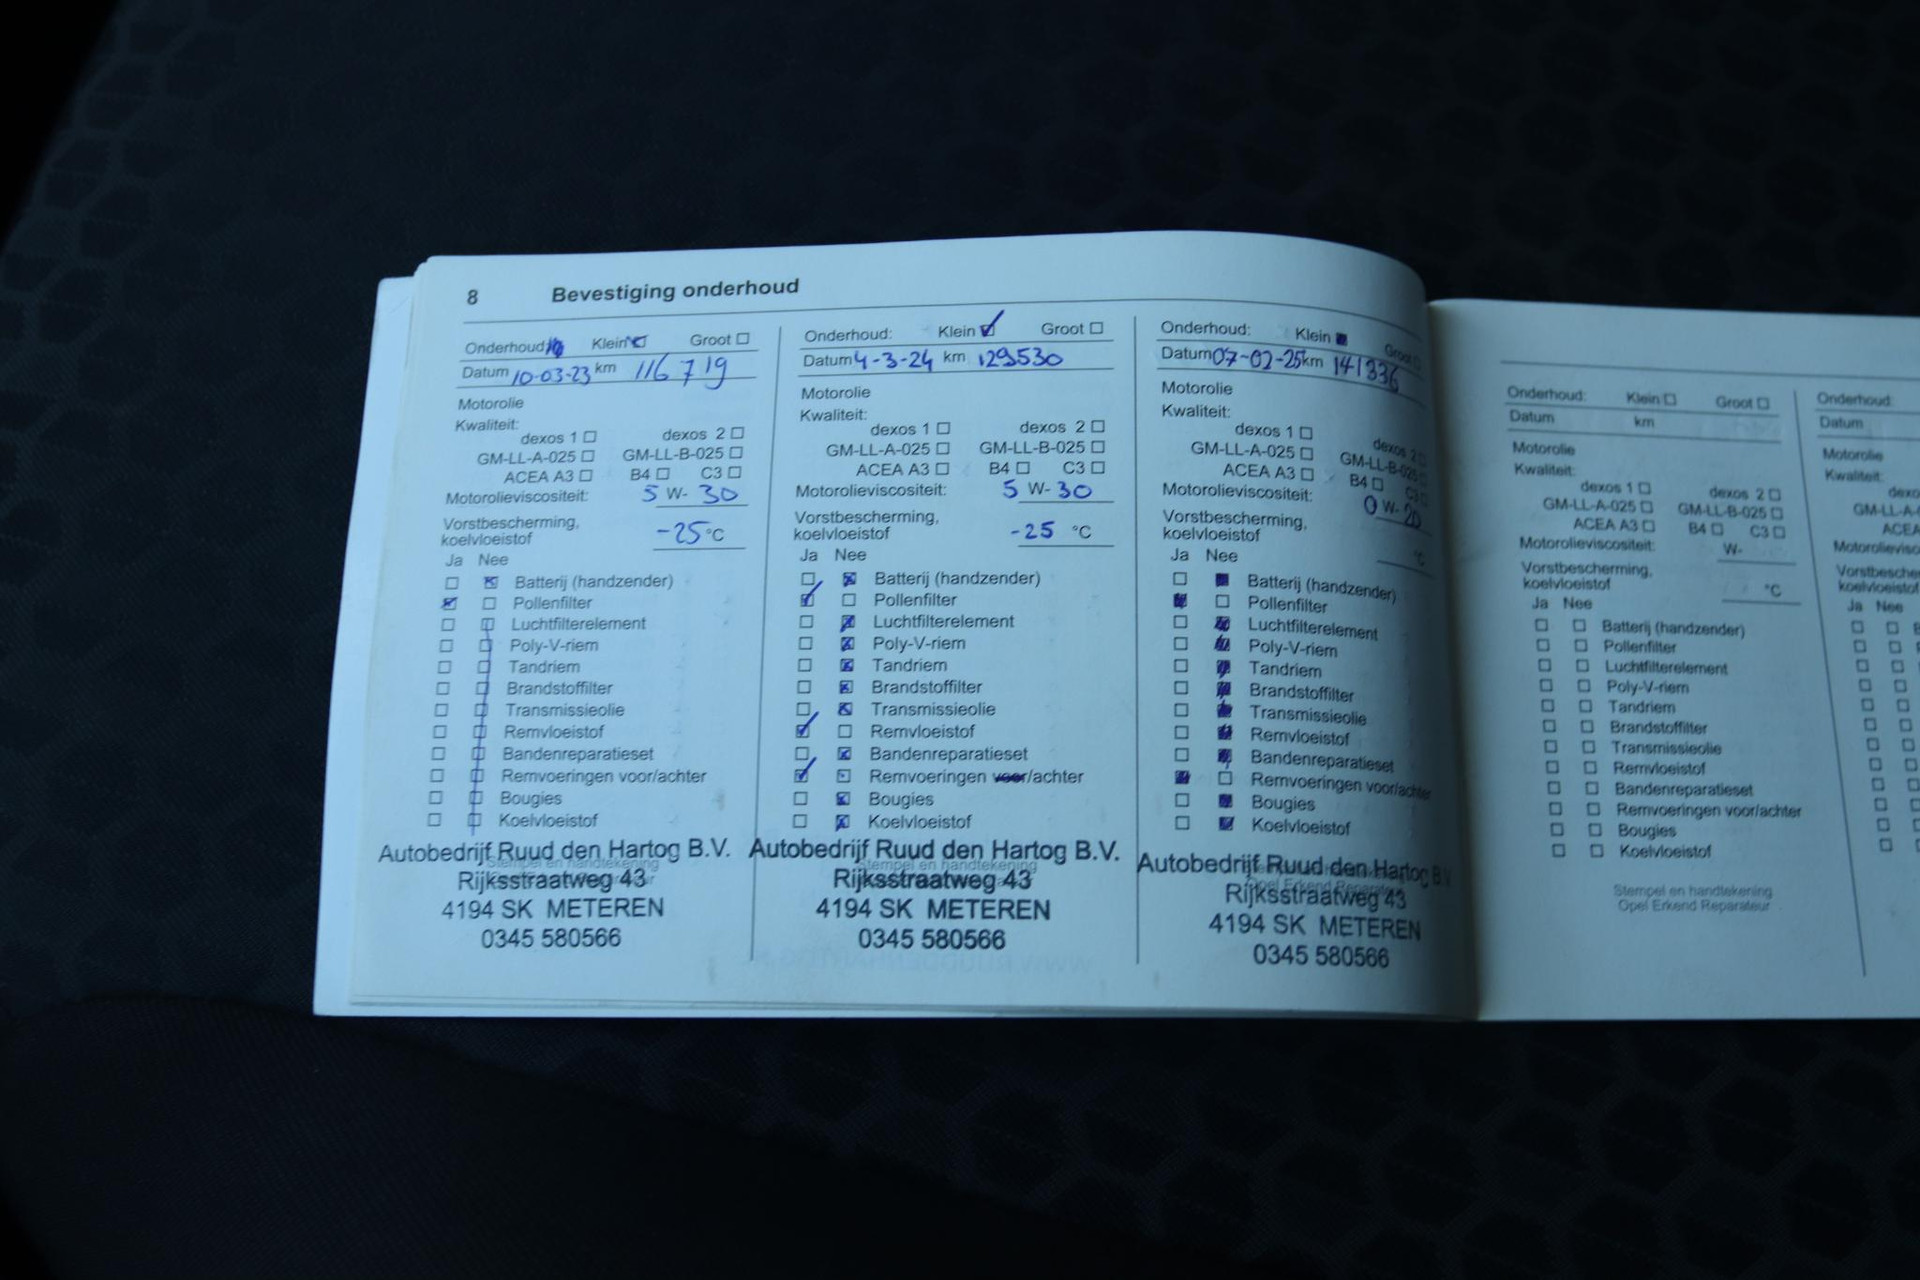 8 Bevestiging onderhoud
Onderhoud: Klein Groot
Datum 10-03-23 km 116 719
Motorolie
Kwaliteit:
dexos 1 dexos 2
GM-LL-A-025 GM-LL-B-025
ACEA A3 B4 C3
Motorolieviscositeit: 5 W- 30
Vorstbescherming,
koelvloeistof -25 °C
Ja Nee
Batterij (handzender)
Pollenfilter
Luchtfilterelement
Poly-V-riem
Tandriem
Brandstoffilter
Transmissieolie
Remvloeistof
Bandenreparatieset
Remvoeringen voor/achter
Bougies
Koelvloeistof
Stempel en handtekening
Autobedrijf Ruud den Hartog B.V.
Rijksstraatweg 43
4194 SK METEREN
0345 580566
Onderhoud: Klein Groot
Datum 4-3-24 km 129530
Motorolie
Kwaliteit:
dexos 1 dexos 2
GM-LL-A-025 GM-LL-B-025
ACEA A3 B4 C3
Motorolieviscositeit: 5 W- 30
Vorstbescherming,
koelvloeistof -25 °C
Ja Nee
Batterij (handzender)
Pollenfilter
Luchtfilterelement
Poly-V-riem
Tandriem
Brandstoffilter
Transmissieolie
Remvloeistof
Bandenreparatieset
Remvoeringen voor/achter
Bougies
Koelvloeistof
Stempel en handtekening
Autobedrijf Ruud den Hartog B.V.
Rijksstraatweg 43
4194 SK METEREN
0345 580566
Onderhoud: Klein Groot
Datum 07-02-25 km 141336
Motorolie
Kwaliteit:
dexos 1 dexos 2
GM-LL-A-025 GM-LL-B-025
ACEA A3 B4 C3
Motorolieviscositeit: 0 W- 20
Vorstbescherming,
koelvloeistof °C
Ja Nee
Batterij (handzender)
Pollenfilter
Luchtfilterelement
Poly-V-riem
Tandriem
Brandstoffilter
Transmissieolie
Remvloeistof
Bandenreparatieset
Remvoeringen voor/achter
Bougies
Koelvloeistof
Opel Erkend Reparateur
Autobedrijf Ruud den Hartog B.V.
Rijksstraatweg 43
4194 SK METEREN
0345 580566
Onderhoud: Klein Groot
Datum km
Motorolie
Kwaliteit:
dexos 1 dexos 2
GM-LL-A-025 GM-LL-B-025
ACEA A3 B4 C3
Motorolieviscositeit: W-
Vorstbescherming,
koelvloeistof °C
Ja Nee
Batterij (handzender)
Pollenfilter
Luchtfilterelement
Poly-V-riem
Tandriem
Brandstoffilter
Transmissieolie
Remvloeistof
Bandenreparatieset
Remvoeringen voor/achter
Bougies
Koelvloeistof
Stempel en handtekening
Opel Erkend Reparateur
Onderhoud:
Datum
Motorolie
Kwaliteit:
Ja Nee